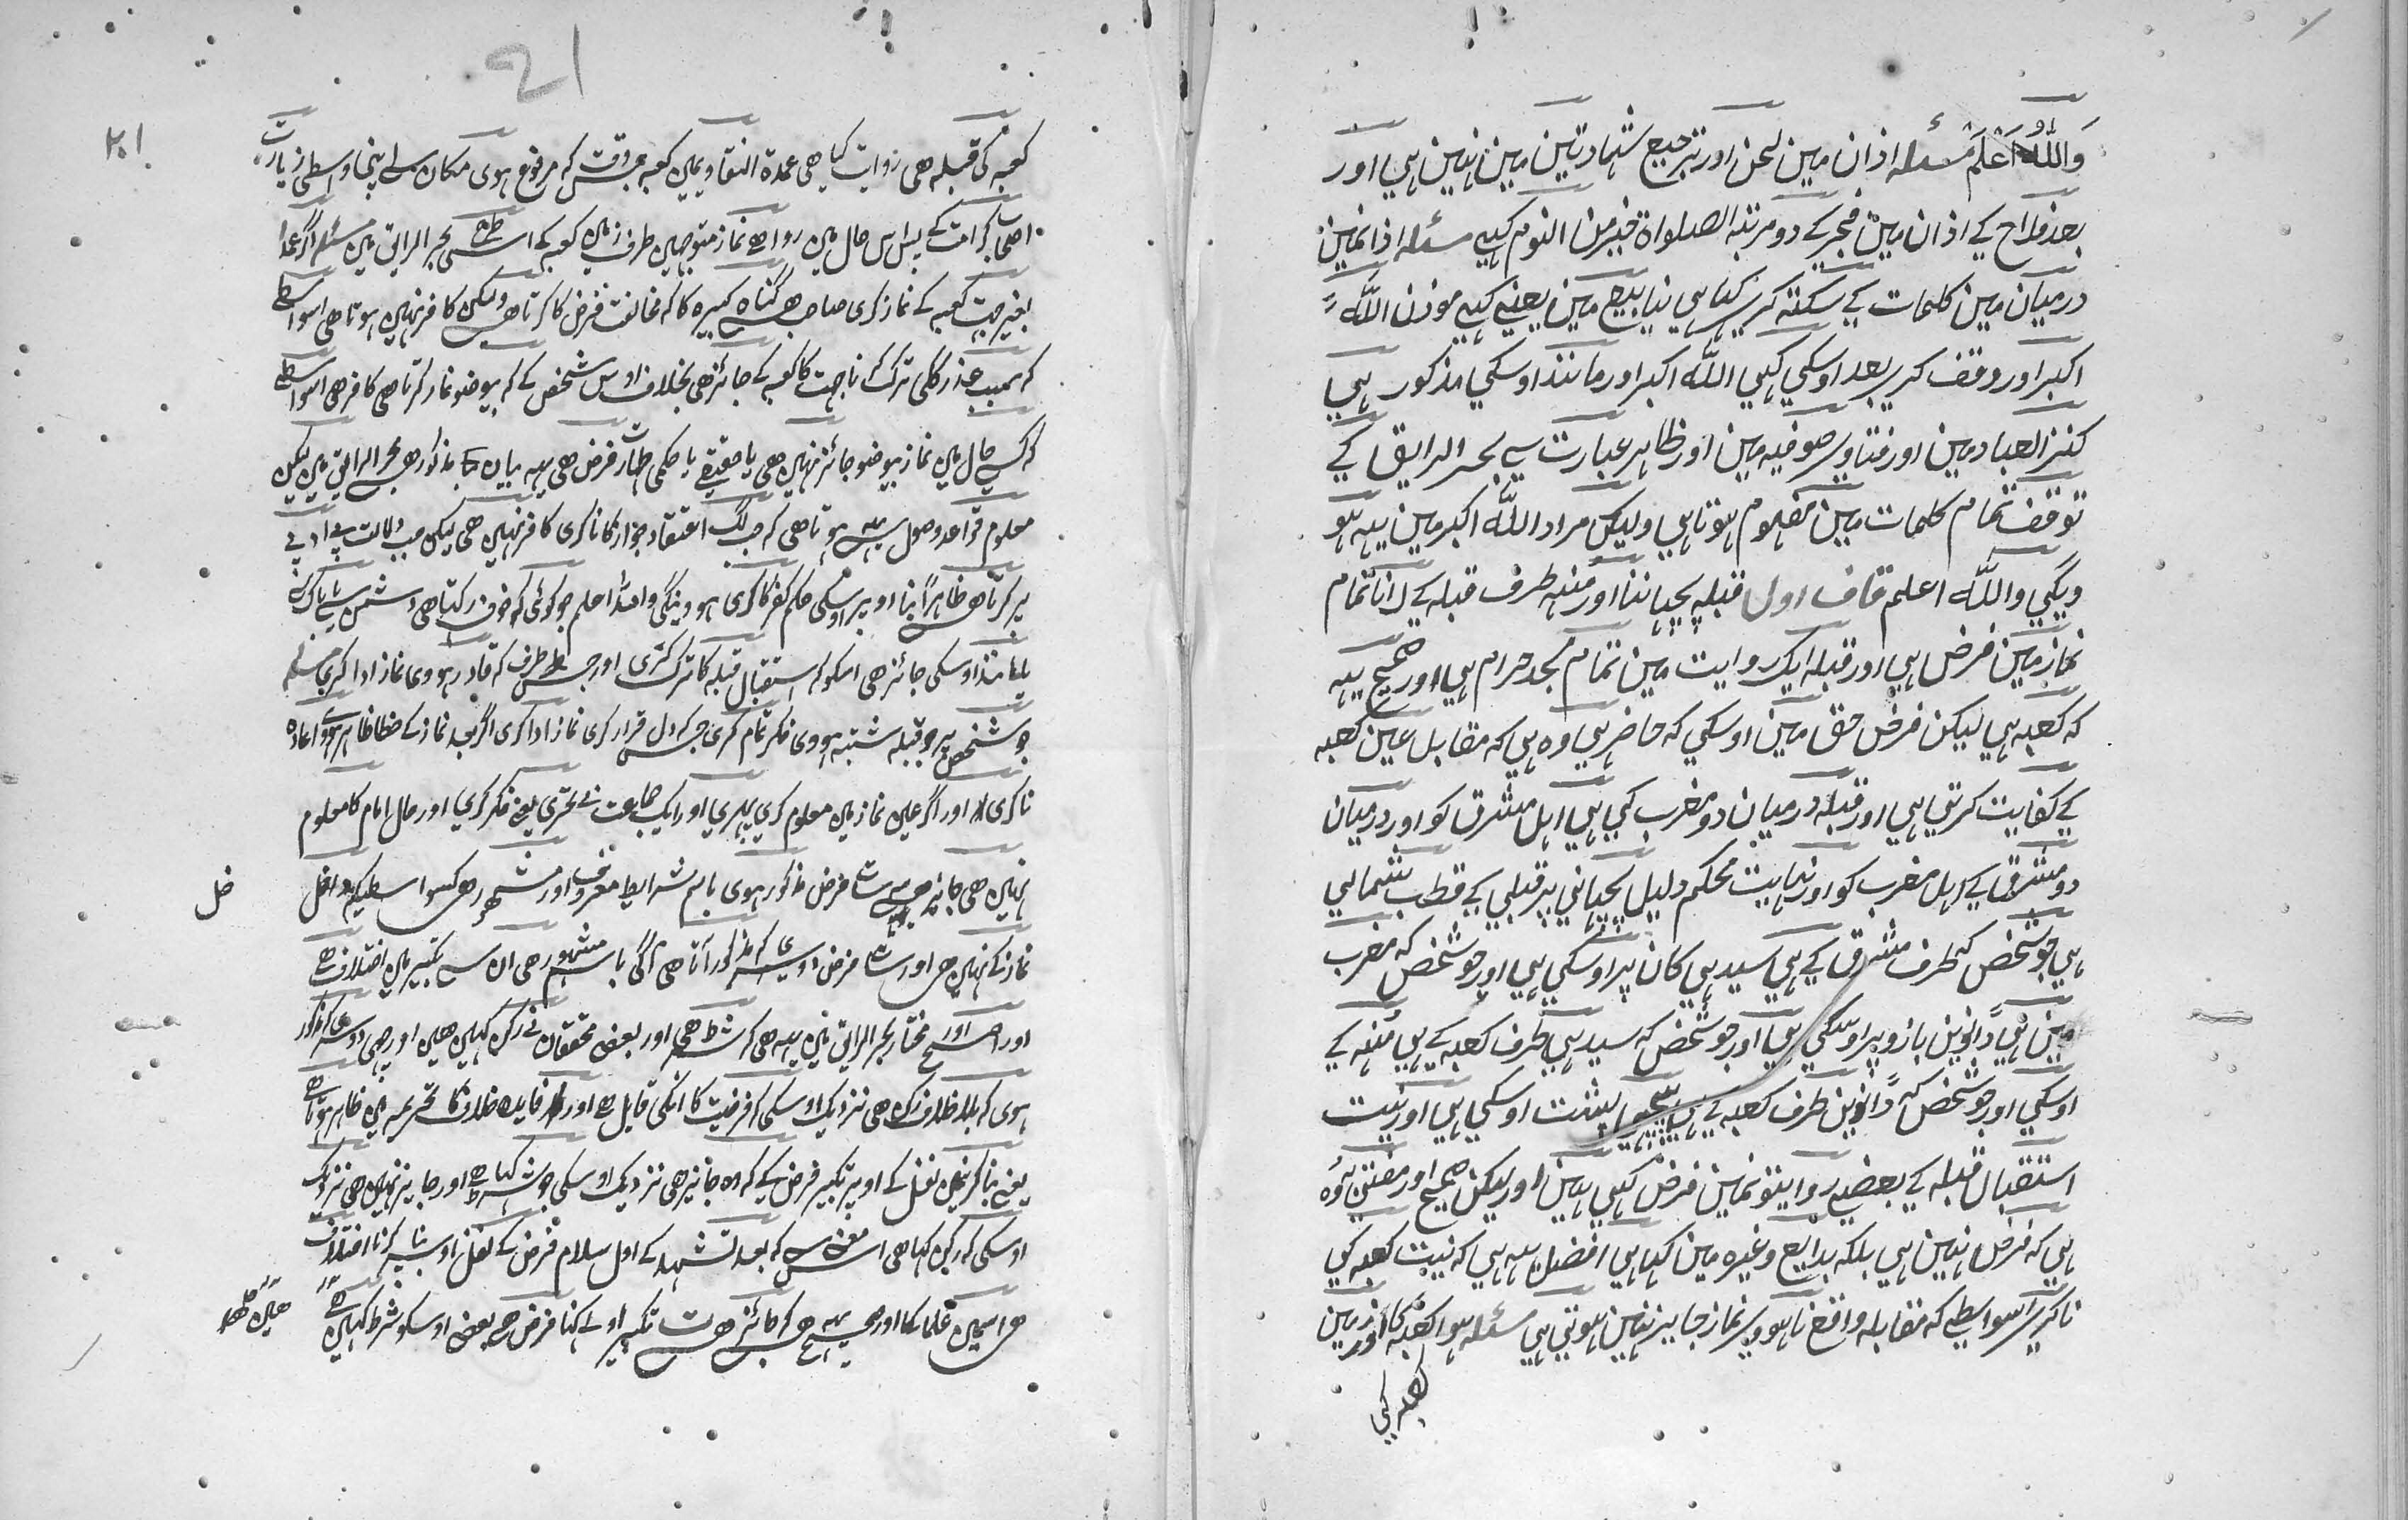 وَاللّٰهُ اَعْلَم مسئلہ اذان مین لحن اور ترجیع شہادتین مین نہین ہی اور
بعد فلاح کے اذان مین فجر کے دو مرتبہ الصلواة خیر من النوم کہے مسئلہ اذانمین
درمیان مین کلمات کے سکتہ کری کہا ہی ینابیع مین یعنے کہے موذن اللّٰه
اکبر اور وقف کری بعد اوسکی کہی اللّٰه اکبر اور مانند اوسکی مذکور ہی
کنز العباد مین اور فتاوی صوفیہ مین اور ظاہر عبارت سے بحر الرایق کے
توقف تمام کلمات مین مفہوم ہوتا ہی ولیکن مراد اللّٰه اکبر مین یہہ ہو
ویگی واللّٰه اعلم قاف اول قبلہ پحچاننا اور منہہ طرف قبلہ کے لانا تمام
نماز مین فرض ہی اور قبلہ ایک روایت مین تمام مسجد حرام ہی اور صحیح یہہ
کہ کعبہ ہی لیکن فرض حق مین اوسکی کہ حاضر ہی وہ ہی کہ مقابل عین کعبہ
کے کفایت کرتی ہی اور قبلہ درمیان دو مغرب کی ہی اہل مشرق کو اور درمیان
دو مشرق کے اہل مغرب کو اور نہایت محکم دلیل پحچانی پر قبلی کے قطب شمالی
ہی جو شخص کہ طرف مشرق کے ہی سیدہی کان پر اوسکی ہی اور جو شخص کہ مغرب
مین ہی دانوین بازو پر اوسکی ہی اور جو شخص کہ سیدہی طرف کعبہ کے ہی منہہ کے
اوسکی اور جو شخص کہ دانوین طرف کعبہ کے ہی پیچھی پشت اوسکی ہی اور نیت
استقبال قبلہ کے بعضی روایتونمین فرض کہی ہین اور لیکن صحیح اور مفتی بہ وہ
ہی کہ فرض نہین ہی بلکہ بدایع وغیرہ مین کہا ہی افضل یہہ ہی کہ نیت کعبہ کی
ناکری اسواسطی کہ مقابلہ واقع ناہووی نماز جایز نہین ہوتی ہی مسئلہ ہوا کعبہ کا اور زمین
کعبہ کی
21
۲۰۱
کعبہ کی قبلہ ھی روایت کیا ھی عمدة الفتاوی مین کعبہ جسوقت کہ مرفوع ہوی مکان سے اپنی واسطی زیارت
اصحاب کرامت کے پس اس حال مین روا ھی نماز متوجھین طرف زمین کعبہ کے اسی طرح بحر الرایق مین مسئلہ اگر عمدا
بغیر جہت کعبہ کے نماز کری صاحب ھی گناہ کبیرہ کا کہ مخالفت فرض کا کرتا ھی ولیکن کافر نہین ہوتا ھی اسواسطی
کہ بسبب عذر کی ترک کرنا جہت کا کعبہ کے جائز ھی بخلاف اوس شخص کے کہ بیوضو نماز کرتا ھی کافر ھی اسواسطی
کہ کسی حال مین نماز بیوضو جائز نہین ھی یا حقیقی یا حکمی طہارت فرض ھی یہہ بیان مذکور ھی بحر الرایق مین لیکن
معلوم قواعد وصول سے یہہ ہوتا ھی کہ جب لگ اعتقاد جواز کا ناکری کافر نہین ھی لیکن جب دلالت بے ادبی
پر کرتا ھی ظاہراً بنا اوپر اوسکی حکم کفر کا کری ہووینگی واللہ اعلم جو کوئی کہ خوف رکہتا ھی دشمن سے یا باگ سے
یا مانند اوسکی جائز ھی اسکو کہ استقبال قبلہ کا ترک کری اور جس طرف کہ قادر ہووی نماز ادا کری مسئلہ
جو شخص پر جو قبلہ مشتبہ ہووی فکر تمام کری جس کہ دل قرار کری نماز ادا کری اگر بعد نماز کے خطا ظاہر ہووے اعادہ
ناکری اور اگر عین نماز مین معلوم کری پہری اور ایک جماعت نے تحری یعنے فکر کری اور حال امام کا معلوم
نہین ھی جایز ھی سات فرض مذکور ہوی باسم شرایط معروف اور مشہور ھی کسواسطیکہ داخل
نماز کے نہین ھی اور سات فرض دوسری کہ مذکور آتا ھی آگی باسم مشہور ھی ان سے تکبیر مین اختلاف ھے
اور اصح اور مختار بحر الرایق مین یہہ ھی کہ شرط ھی اور بعض محققان نے رکن کہین ھین اور چھی دوسری کہ مذکور
ہوی کہ بلا خلاف رکن ھی نزدیک اوسکی کہ فرضیت کا انکی قایل ھے اور فایدہ خلاف کا تحریمہ مین ظاہر ہوتا ھے
یعنے بنا کرنیمین نفل کے اوپر تکبیر فرض کے کہ وہ جایز ھی نزدیک اوسکی جو شرط کہتا ھے اور جایز نہین ھی نزدیک
اوسکی کہ رکن کہتا ھی اس معنی سے کہ بعد تشہد کے اول سلام فرض کے نفل اوپر بنا کرنا اختلاف
ھی اسمین علما کا اور صحیح یہہ ھی کہ جائز ھی تکبیر اولے کہنا فرض ھے بعض اوسکو شرط کہین ھے